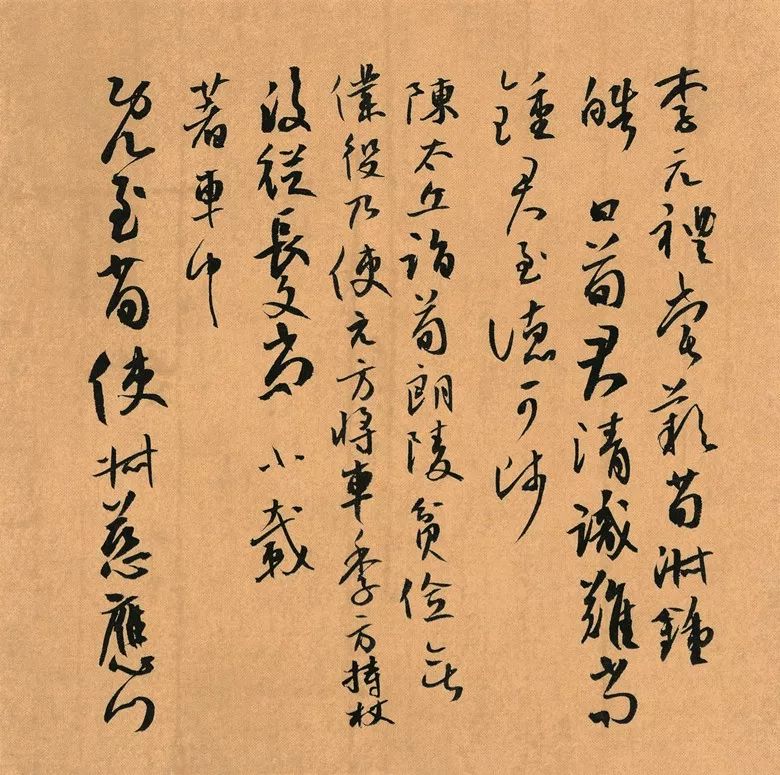 李元禮嘗歎荀淑鍾
皓曰荀君清識難尚
鍾君至德可師
陳太丘詣荀朗陵貧儉無
僕役乃使元方將車季方持杖
後從長文尚小載
著車中
既至荀使叔慈應門